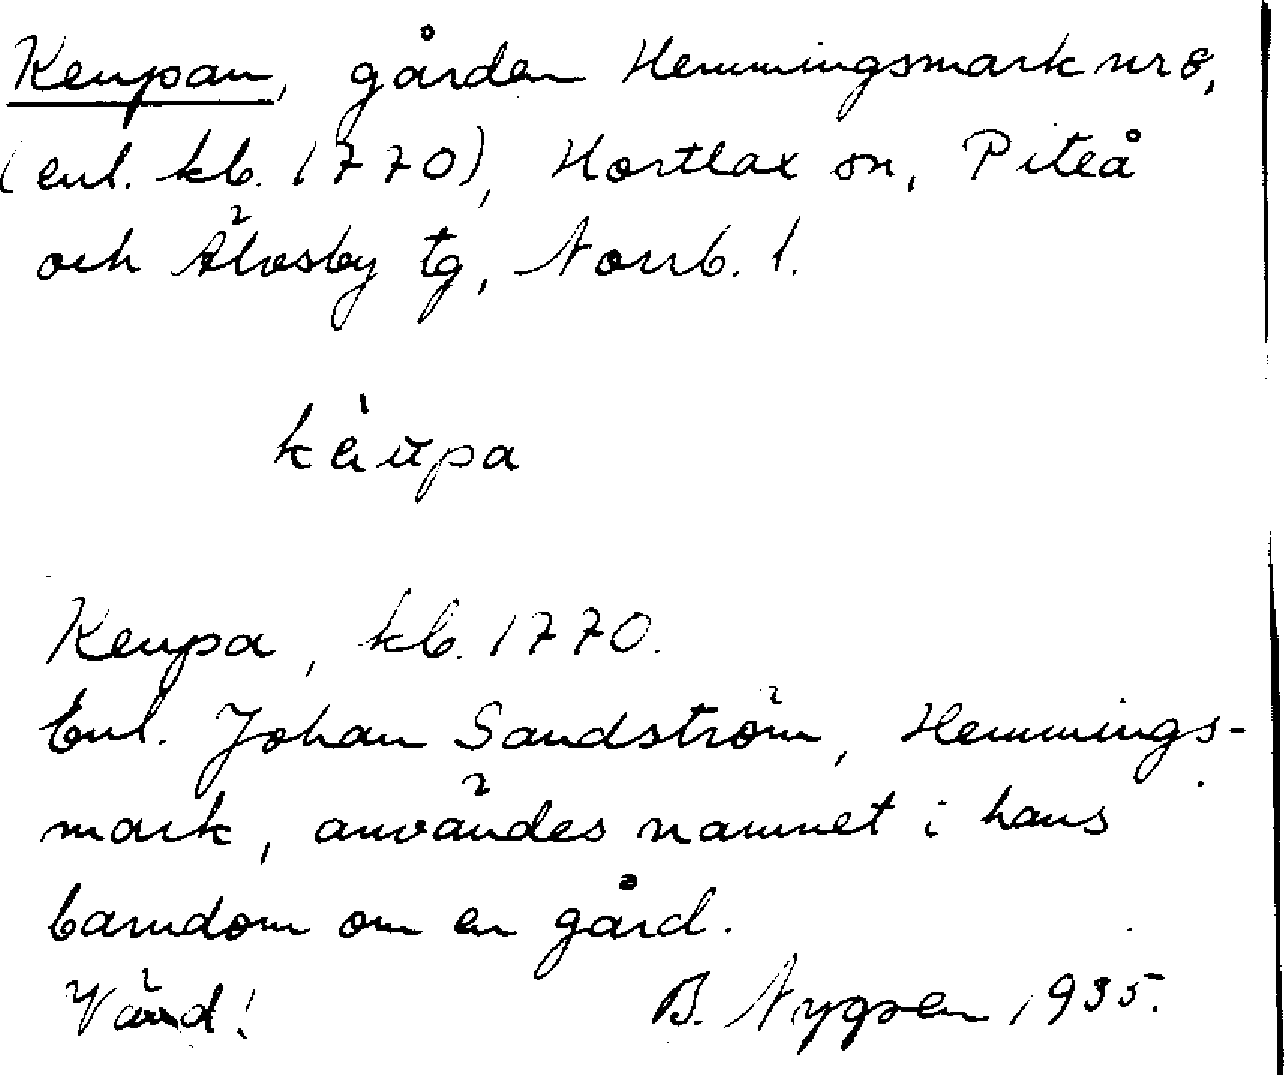 Keupan, gården Hemmingsmark nr 8,
(enl. kb. 1770), Hortlax sn, Piteå
och Älvsby tg, Norrb. l.
Keupa, kb. 1770.
Enl. Johan Sandström, Hemmings-
mark, användes namnet i hans
barndom om en gård.
Vänd!
B. Nygren 1935.